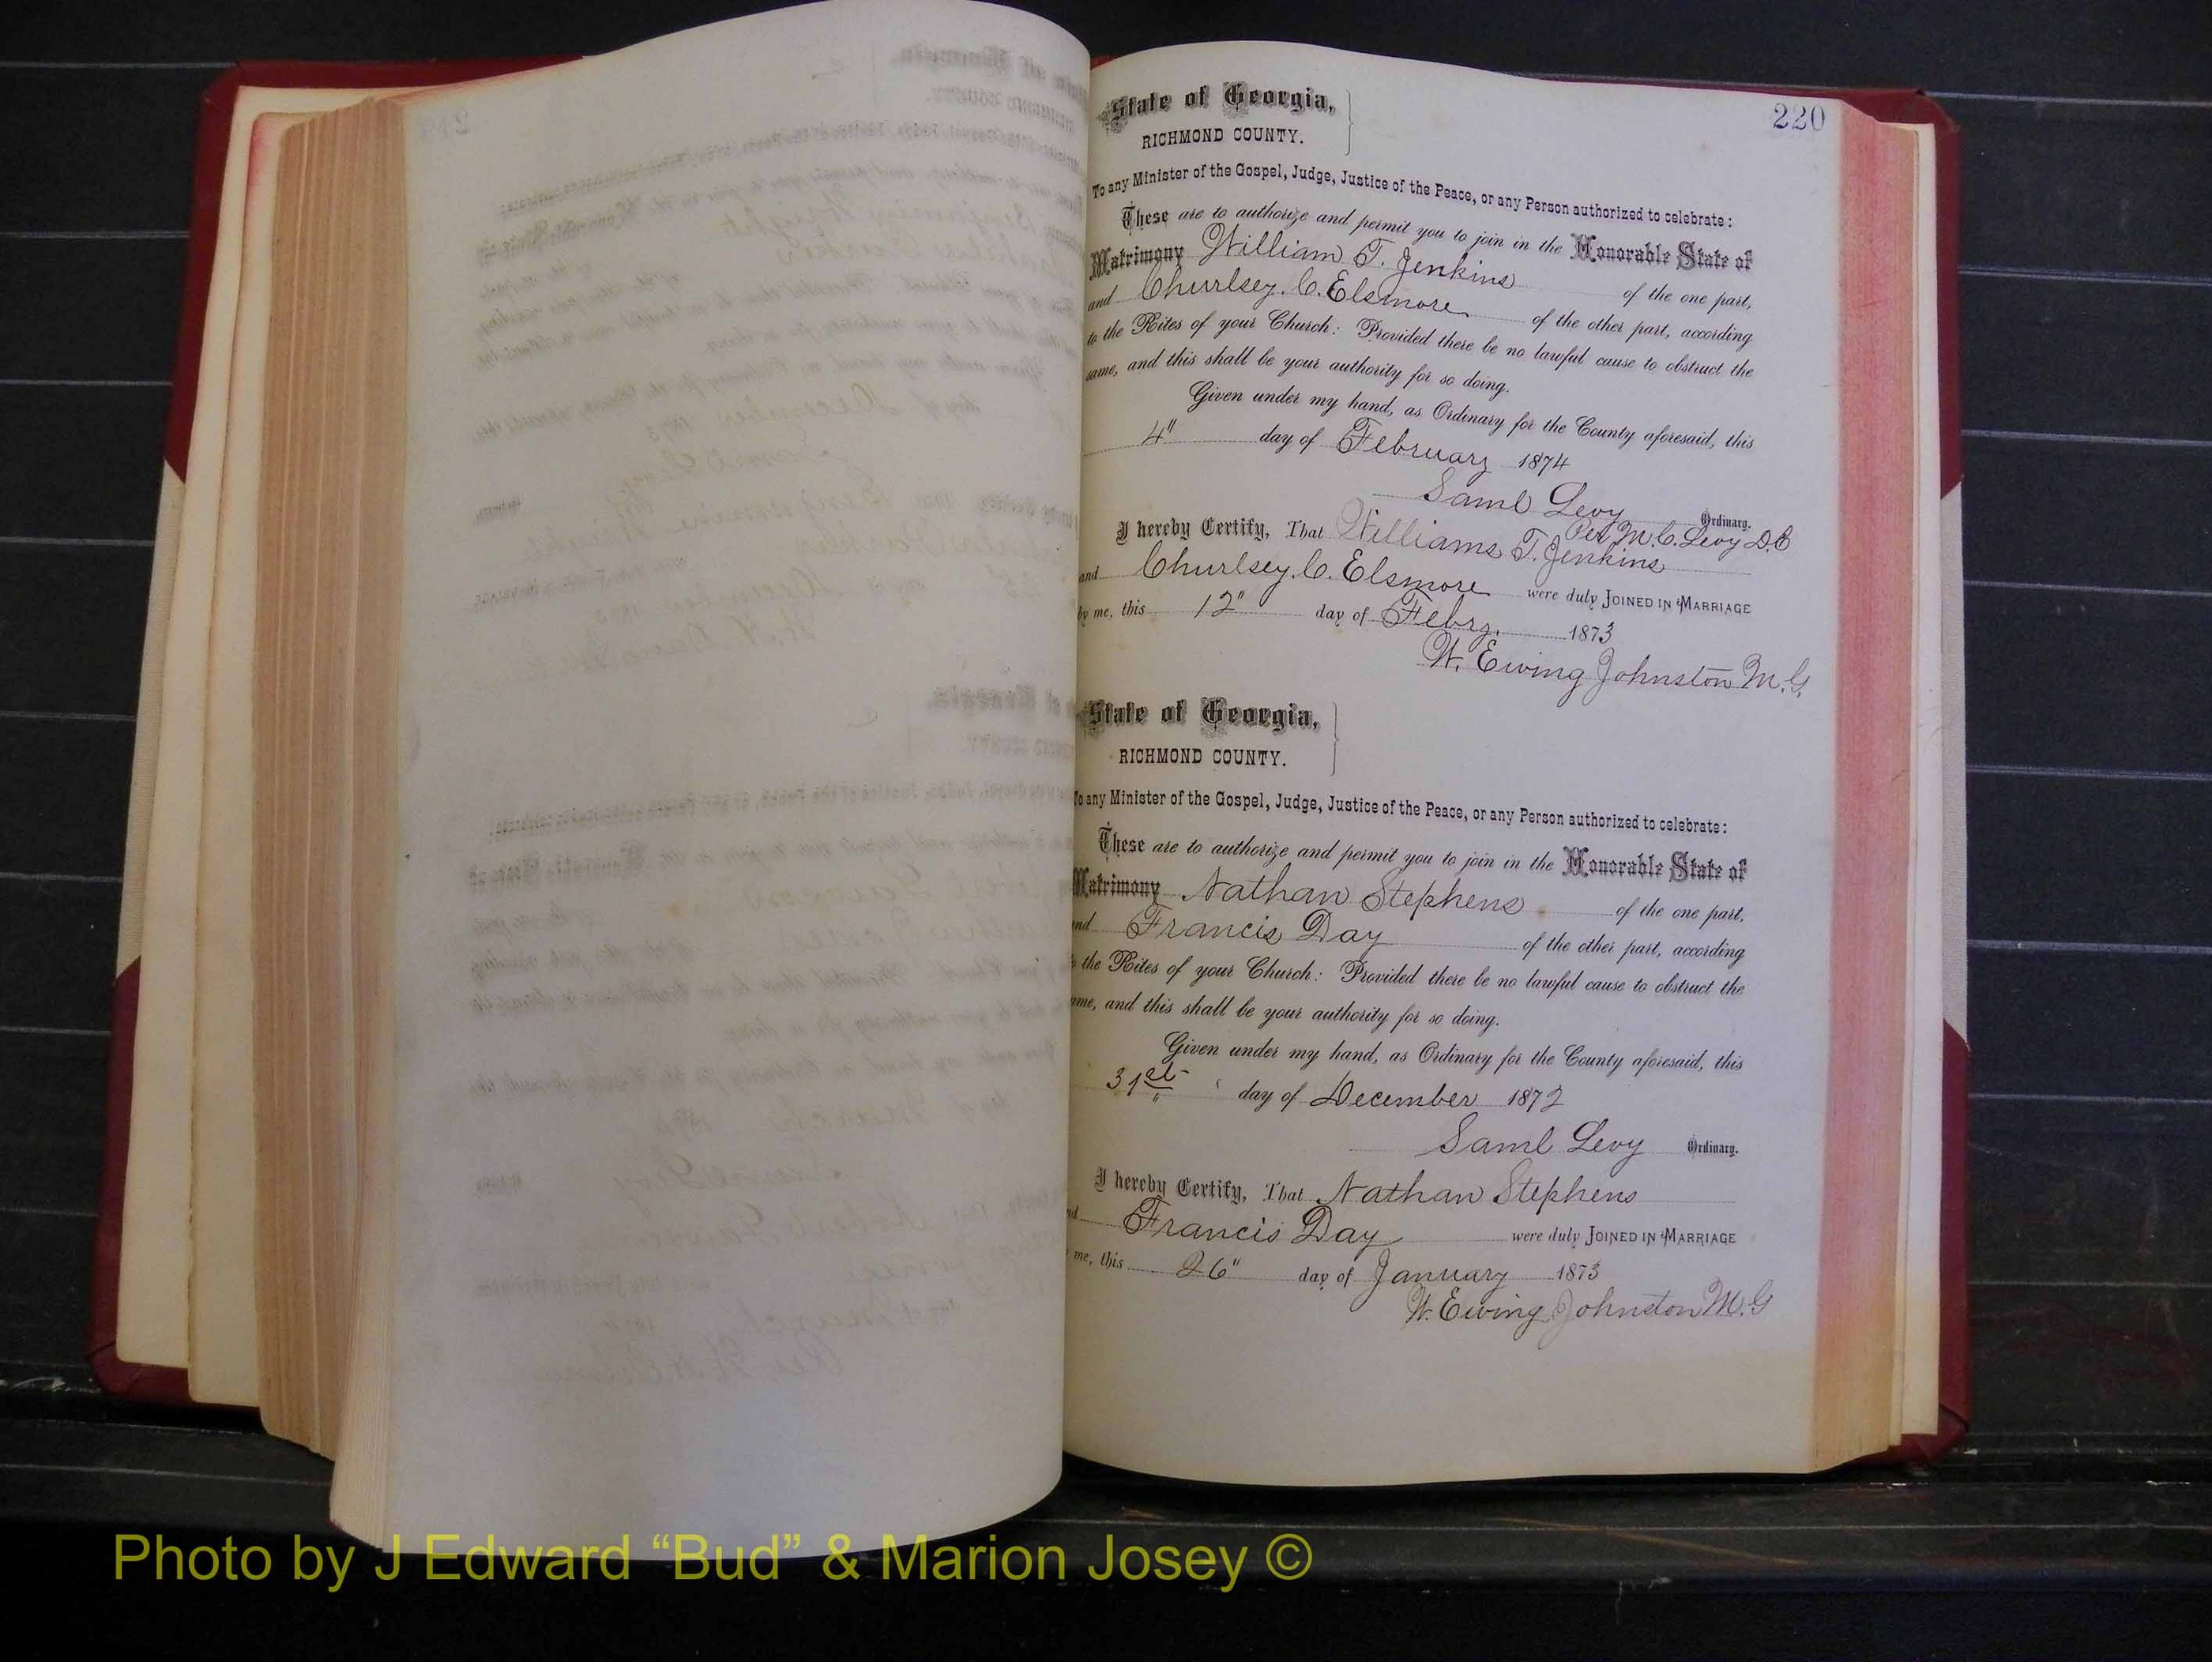 220
State of Georgia,
RICHMOND COUNTY.
To any Minister of the Gospel, Judge, Justice of the Peace, or any Person authorized to celebrate:
These are to authorize and permit you to join in the Honorable State of
Matrimony William T. Jenkins of the one part,
and Churlsey. C. Elsmore of the other part, according
to the Rites of your Church: Provided there be no lawful cause to obstruct the
same, and this shall be your authority for so doing.
Given under my hand, as Ordinary for the County aforesaid, this
4" day of February 1874
Saml Levy Ordinary.
Per M. C. Levy D.C
I hereby Certify, That Williams T. Jenkins
and Churlsey. C. Elsmore were duly JOINED IN MARRIAGE
by me, this 12" day of Febry. 1873
W. Ewing Johnston M.G.
State of Georgia,
RICHMOND COUNTY.
To any Minister of the Gospel, Judge, Justice of the Peace, or any Person authorized to celebrate:
These are to authorize and permit you to join in the Honorable State of
Matrimony Nathan Stephens of the one part,
and Francis Day of the other part, according
the Rites of your Church: Provided there be no lawful cause to obstruct the
ame, and this shall be your authority for so doing.
Given under my hand, as Ordinary for the County aforesaid, this
31st day of December 1872
Saml Levy Ordinary.
I hereby Certify, That Nathan Stephens
Francis Day were duly JOINED IN MARRIAGE
me, this 26" day of January 1873
W. Ewing Johnston M.G
Photo by J Edward “Bud” & Marion Josey ©